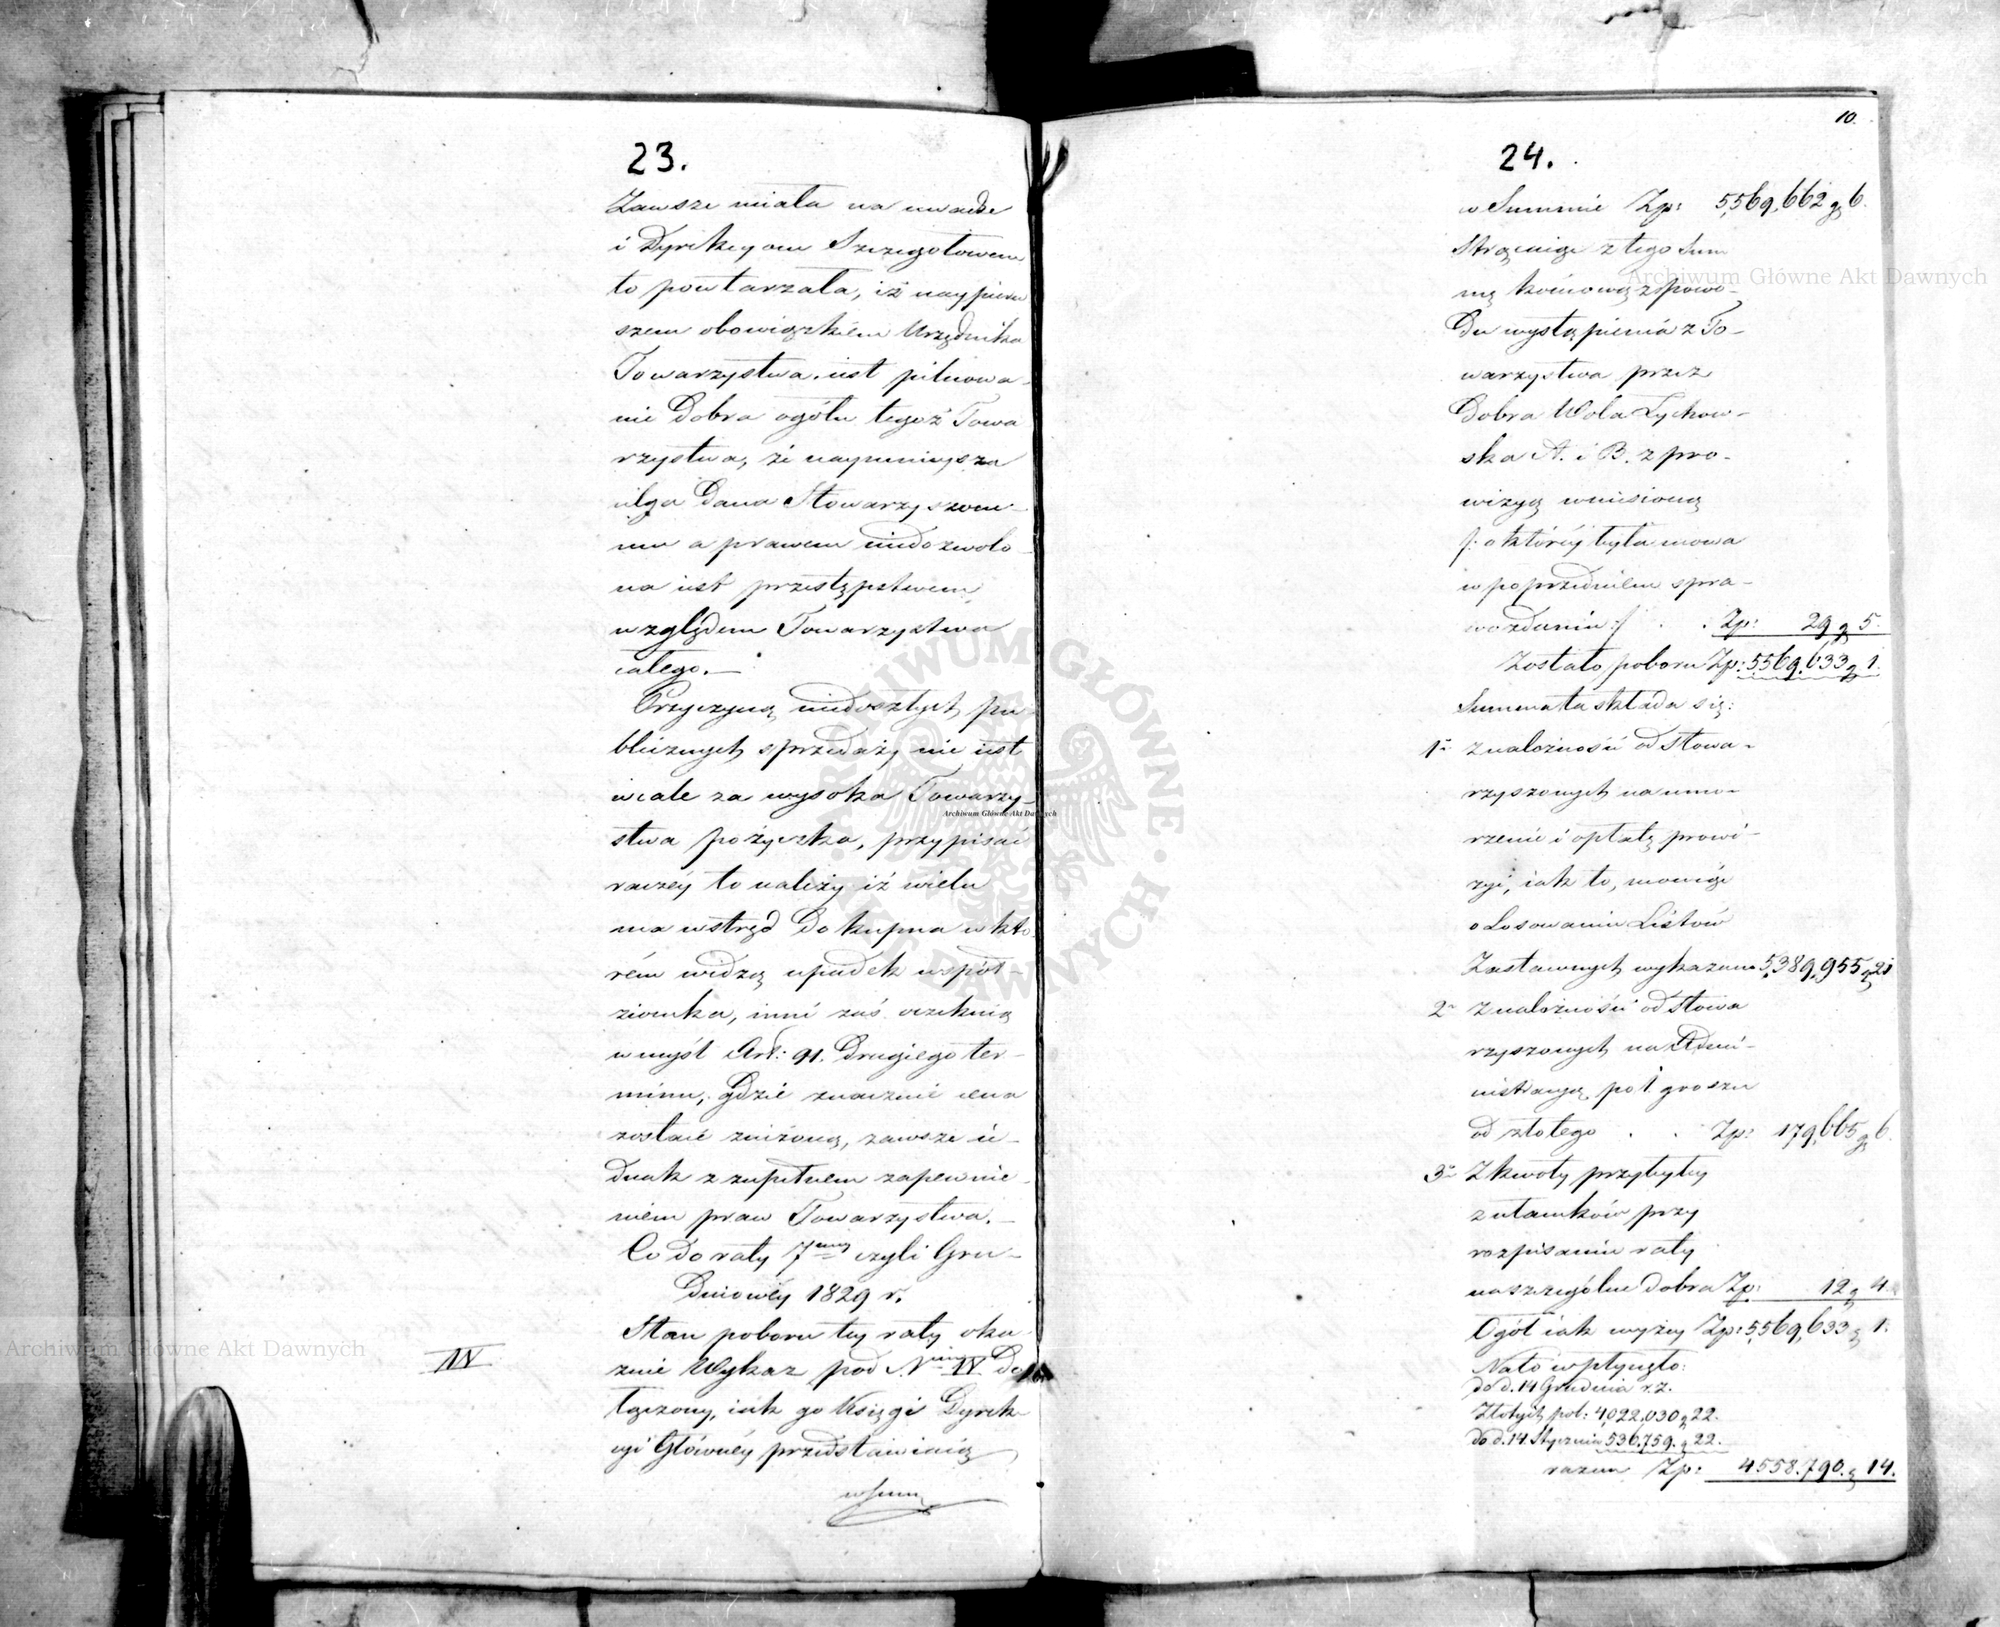 23.
Zawsze miała na uwadze
i Dyrekcyom Szczegółowem
to powtarzała, iż naypierw
szem obowiązkiem Urzędnika
Towarzystwa iest pilnowa-
nie Dobra ogółu tegoż Towa
rzystwa, że naymnieysza
ulga Dana Stowarzyszone-
mu a prawem niedozwolo-
na iest przestępstwem
względem Towarzystwa
całego.—
Przyczyną niedoszłych pu-
blicznych sprzedaży nie iest
wcale za wysoka Towarzy-
stwa pożyczka, przypisać
raczéy to należy iż wielu
ma wstręd Do kupna w któ-
rém widzą upadek współ-
ziomka, inni zaś czekaią
w myśl Art: 91. Drugiego ter-
minu, gdzie znacznie cena
zostaie zniżoną, zawsze ie-
dnak z zupełnem zapewnie-
niem praw Towarzystwa.—
Co do raty 7mey czyli Gru-
dniowéy 1829 r.
IV
Stan poboru tey raty oka-
zuie Wykaz pod Nrem IV. Do
łączony, iak go Księgi Dyrek-
cyi Główney przedstawiaią
w Summ
10.
24.
w Summie Zp: 5,569,662 g 6.
Strąciwszy z tego Sum
mę końcową z powo-
Du wystąpienia z To-
warzystwa przez
Dobra Wola Łychow-
ska A. i B. z pro-
wizyą wniesioną
/: o któréy była mowa
w poprzedniem spra-
wozdaniu :/ . . Zp: 29 g 5.
Zostało poboru Zp: 5,569,633 g 1.
Summa ta składa się:
1o z należności od Stowa-
rzyszonych na umo-
rzenie i opłatę prowi-
zyi, iak to, mówiąc
o Losowaniu Listów
Zastawnych wykazano 5,389,955 g 21
2o z należności od Stowa
rzyszonych na Admi-
nistracyą po 1 groszu
od złotego . . Zp: 179,665 g 6.
3o Z kwoty przybyłey
z ułamków przy
rozpisaniu raty
na szczególne dobra Zp: 12 g 4.
Ogół iak wyżey Zp: 5,569,633 g 1.
Na to wpłynęło:
do d. 14 Grudnia r. z.
Złotych pol: 4,022,030 g 22.
do d. 14. Stycznia 536,759. g 22.
razem Zp: 4558.790. g 14.
Archiwum Główne Akt Dawnych
Archiwum Główne Akt Dawnych
Archiwum Główne Akt Dawnych
ARCHIWUM GŁÓWNE · AKT DAWNYCH ·